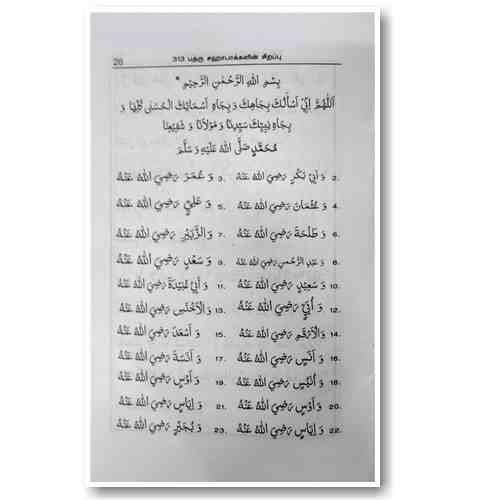 26 313 பத்ரு சஹாபாக்களின் சிறப்பு
بِسْمِ اللهِ الرَّحْمٰنِ الرَّحِيْمِ
اَللّٰهُمَّ اِنِّيْ اَسْأَلُكَ بِجَاهِكَ وَ بِجَاهِ اَسْمَائِكَ الْحُسْنٰى كُلِّهَا وَ
بِجَاهِ نَبِيِّكَ سَيِّدِنَا وَ مَوْلَانَا وَ شَفِيْعِنَا
مُحَمَّدٍ صَلَّى اللهُ عَلَيْهِ وَ سَلَّمَ
2. وَ اَبِيْ بَكْرٍ رَضِيَ اللهُ عَنْهُ 3. وَ عُمَرَ رَضِيَ اللهُ عَنْهُ
4. وَ عُثْمَانَ رَضِيَ اللهُ عَنْهُ 5. وَ عَلِيٍّ رَضِيَ اللهُ عَنْهُ
6. وَ طَلْحَةَ رَضِيَ اللهُ عَنْهُ 7. وَ الزُّبَيْرِ رَضِيَ اللهُ عَنْهُ
8. وَ عَبْدِ الرَّحْمٰنِ رَضِيَ اللهُ عَنْهُ 9. وَ سَعْدٍ رَضِيَ اللهُ عَنْهُ
10. وَ سَعِيْدٍ رَضِيَ اللهُ عَنْهُ 11. وَ اَبِيْ عُبَيْدَةَ رَضِيَ اللهُ عَنْهُ
12. وَ اُبَيٍّ رَضِيَ اللهُ عَنْهُ 13. وَ الْاَخْنَسِ رَضِيَ اللهُ عَنْهُ
14. وَ الْاَرْقَمِ رَضِيَ اللهُ عَنْهُ 15. وَ اَسْعَدَ رَضِيَ اللهُ عَنْهُ
16. وَ اَنَسٍ رَضِيَ اللهُ عَنْهُ 17. وَ اَنَسَةَ رَضِيَ اللهُ عَنْهُ
18. وَ اُنَيْسٍ رَضِيَ اللهُ عَنْهُ 19. وَ اَوْسٍ رَضِيَ اللهُ عَنْهُ
20. وَ اَوْسٍ رَضِيَ اللهُ عَنْهُ 21. وَ اِيَاسٍ رَضِيَ اللهُ عَنْهُ
22. وَ اِيَاسٍ رَضِيَ اللهُ عَنْهُ 23. وَ بُجَيْرٍ رَضِيَ اللهُ عَنْهُ